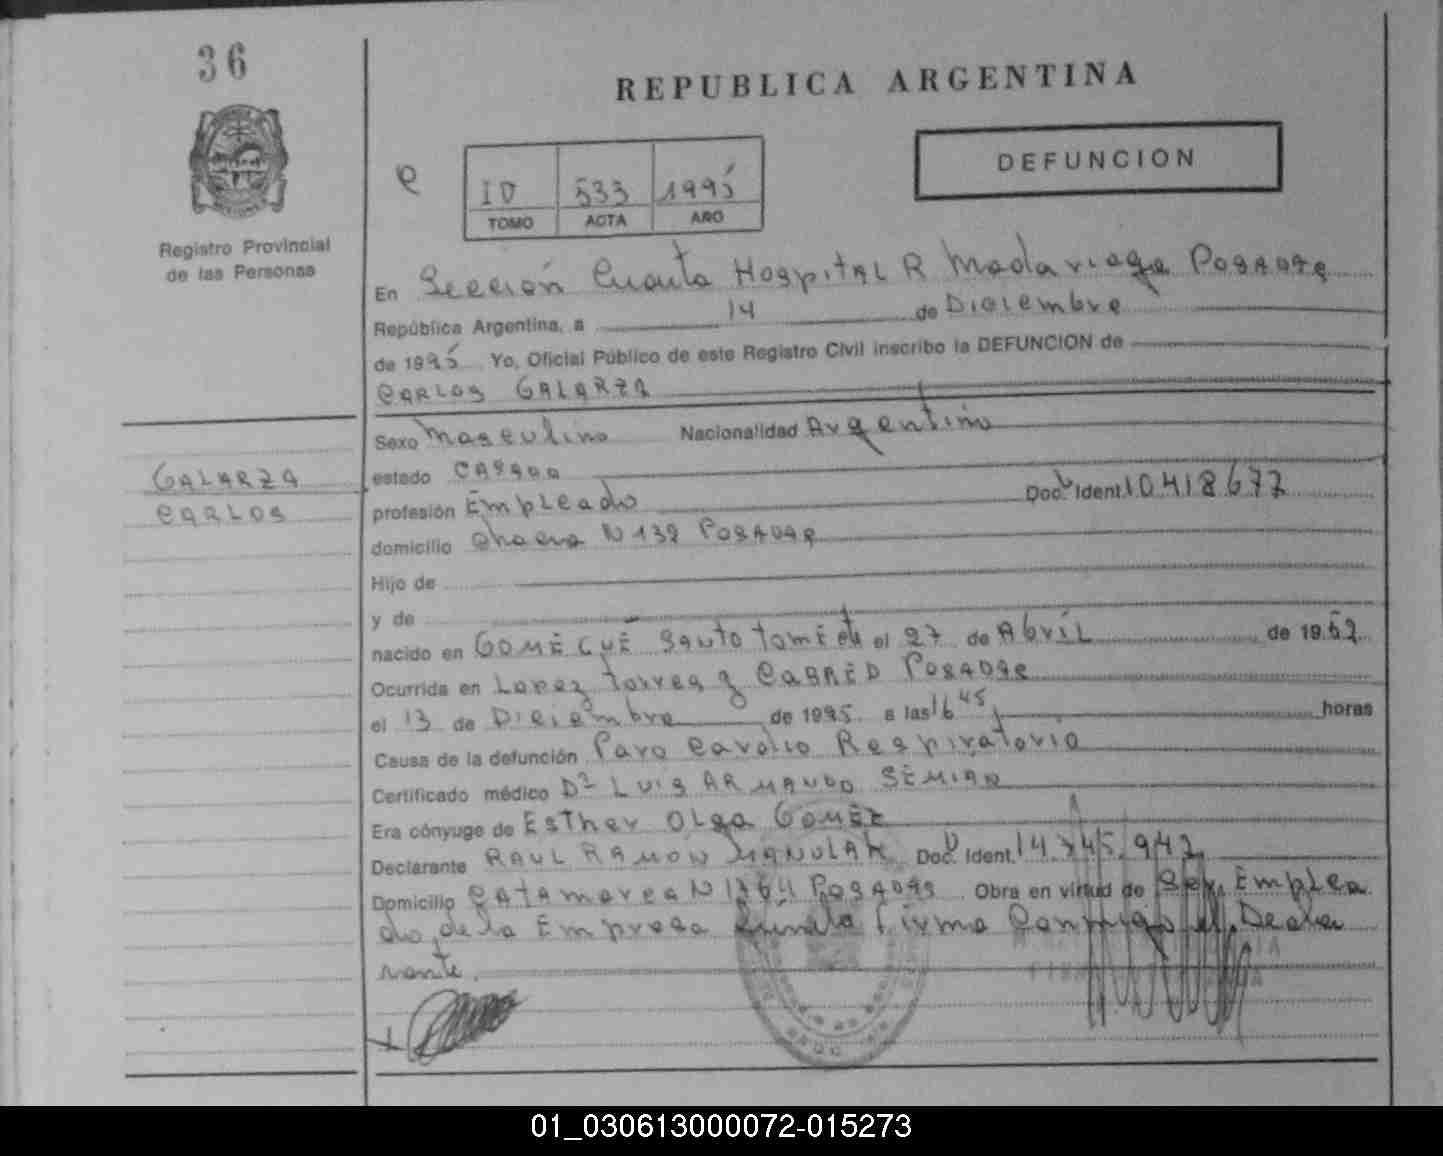 36
REPUBLICA ARGENTINA
DEFUNCION
e
ID 533 1995
TOMO ACTA AÑO
Registro Provincial
de las Personas
En Sección Cuarta Hospital R Madariaga Posadas
República Argentina, a 14 de Diciembre
de 1995 Yo, Oficial Público de este Registro Civil inscribo la DEFUNCION de
CARLOS GALARZA
GALARZA
CARLOS
Sexo Masculino Nacionalidad Argentino
estado CASADO
profesión Empleado Doc. Ident. 10.418.677
domicilio Chacra N 132 POSADAS
Hijo de
y de
nacido en GOMECUÉ SANTO TOMÉ el 27 de Abril de 1952
Ocurrida en Lopez Torres y CABRED POSADAS
el 13 de Diciembre de 1995 a las 16 45 horas
Causa de la defunción Paro Cardio Respiratorio
Certificado médico Dr LUIS ARMANDO
Era cónyuge de Esther Olga GOMEZ
Declarante RAUL RAMON Doc. Ident. 14.745.942
Domicilio CATAMARCA N 1364 POSADAS Obra en virtud de Ser Emplea
do de la Empresa Firma Conmigo el Decla
rante.
01_030613000072-015273